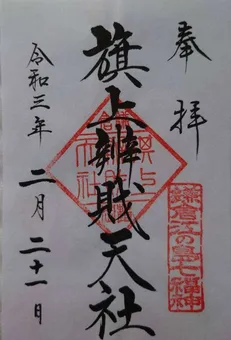 奉拝
旗上辨財天社
鎌倉江の島七福神
令和三年二月二十一日